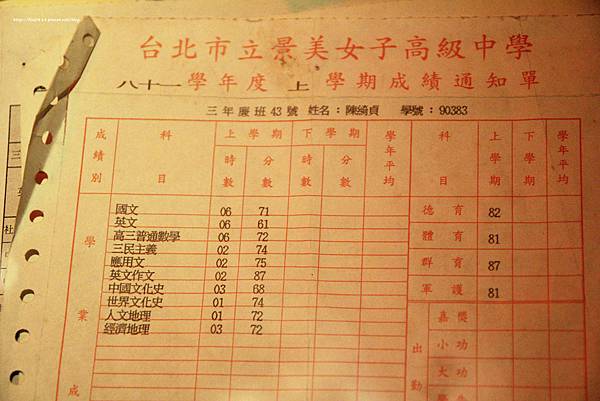 台北市立景美女子高級中學
八十一 學年度 上 學期成績通知單
三年慶班43號 姓名：陳綺貞 學號：90383
成績別 科目 上學期 下學期 學年平均 科目 上學期 下學期 學年平均
時數 分數 時數 分數
國文 06 71 德育 82
英文 06 61
高三普通數學 06 72 體育 81
三民主義 02 74
應用文 02 75 群育 87
英文作文 02 87
中國文化史 03 68 軍護 81
世界文化史 01 74
人文地理 01 72 嘉獎
經濟地理 03 72 小功
大功
學業成
出勤
三
社